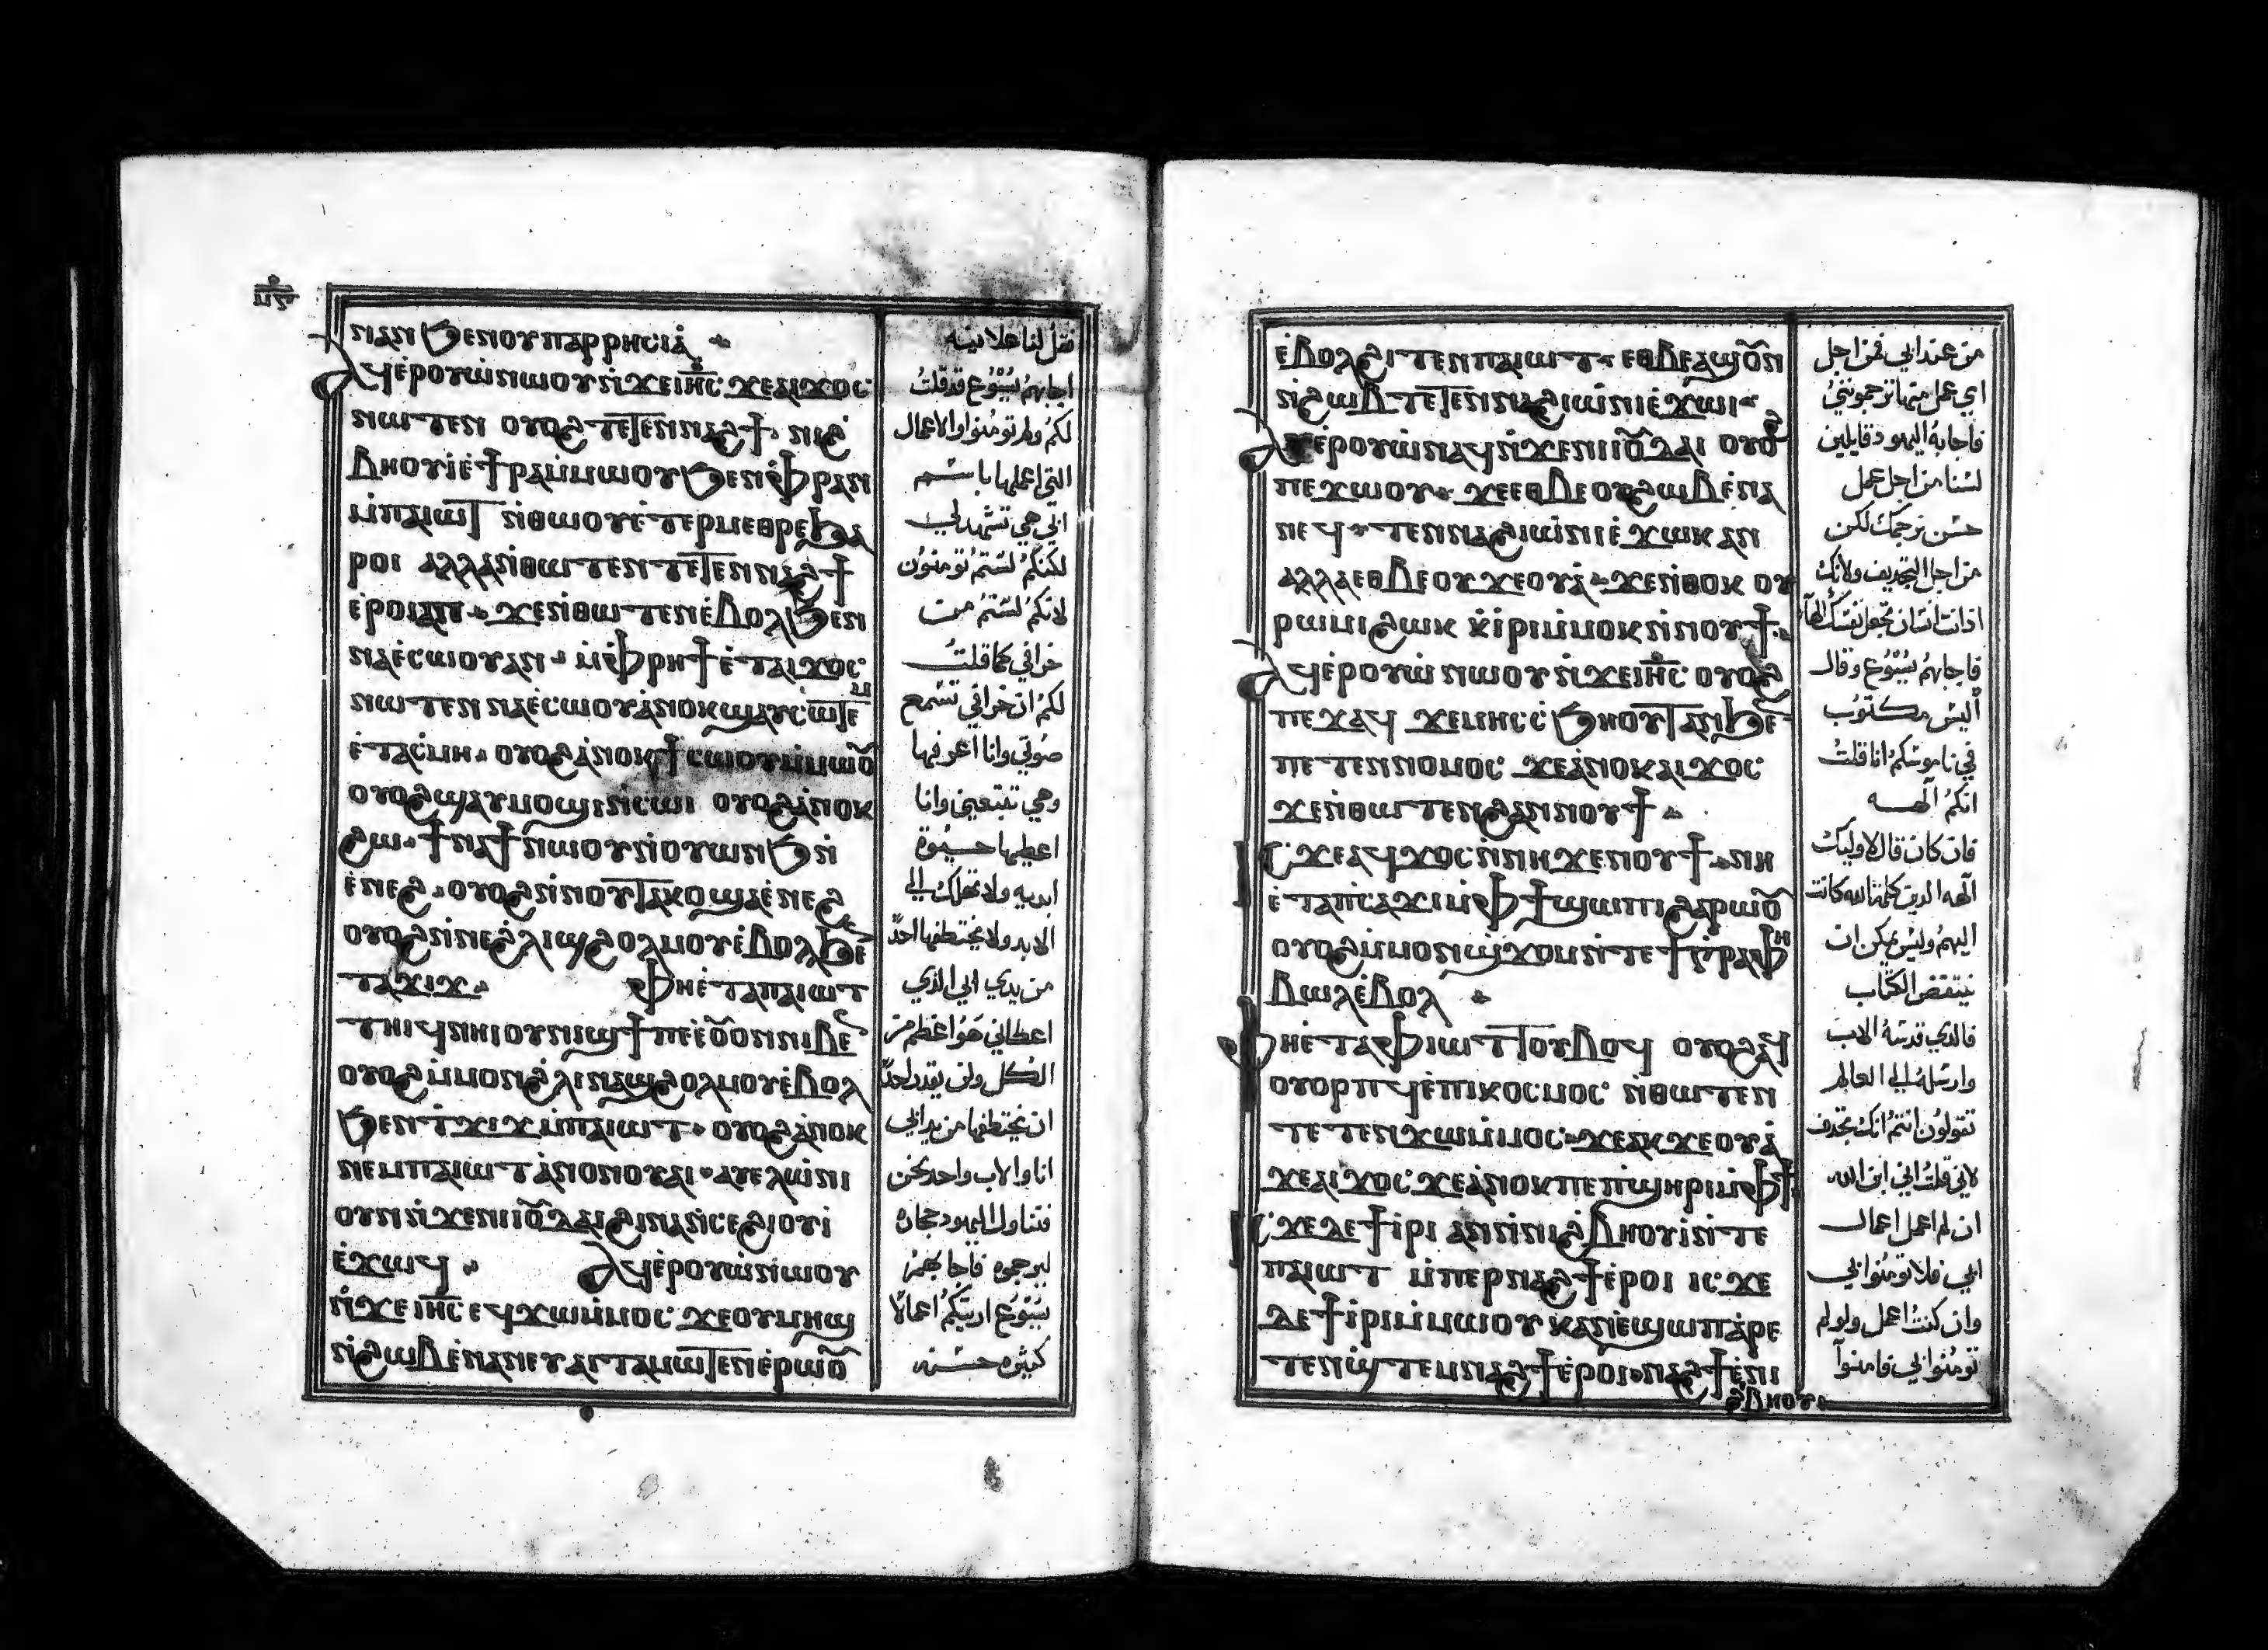 ⲛⲁⲛ ϧⲉⲛⲟⲩⲡⲁⲣⲣⲏⲥⲓⲁ̀
ⲁϥⲉ̀ⲣⲟⲩⲱ̀ⲛⲱⲟⲩⲛ̀ϫⲉⲓⲏ̅ⲥ̅ ϫⲉⲁⲓϫⲟⲥ
ⲛⲱⲧⲉⲛ ⲟⲩⲟϩ ⲧⲉⲧⲉⲛⲛⲁϩϯ ⲛⲓϩ̀
ⲃⲏⲟⲩⲓ̀ⲉ̀ϯⲣⲁⲙ̀ⲙⲱⲟⲩϧⲉⲛⲫ̀ⲣⲁⲛ
ⲙ̀ⲡⲁⲓⲱⲧ ⲛ̀ⲑⲱⲟⲩⲉ̀ⲧⲉⲣⲙⲉⲑⲣⲉϧⲁ
ⲣⲟⲓ ⲁⲗⲗⲁⲛ̀ⲑⲱⲧⲉⲛ ⲧⲉⲧⲉⲛⲛⲁϩϯ
ⲉ̀ⲣⲟⲓⲁⲛ ϫⲉⲛ̀ⲑⲱⲧⲉⲛⲉ̀ⲃⲟⲗϧⲉⲛ
ⲛⲁⲉ̀ⲥⲱⲟⲩⲁⲛ ⲙ̀ⲫⲣⲏϯ ⲉ̀ⲧⲁⲓϫⲟⲥ
ⲛⲱⲧⲉⲛ ⲛⲁⲉ̀ⲥⲱⲟⲩⲁ̀ⲛⲟⲕϣⲁⲩⲥⲱⲧⲉⲙ
ⲉ̀ⲧⲁⲥ̀ⲙⲏ ⲟⲩⲟϩⲁ̀ⲛⲟⲕϯⲥⲱⲟⲩⲛⲙ̀ⲙⲱⲟ̅
ⲟⲩⲟϩϣⲁⲩⲙⲟϣⲓⲛ̀ⲥⲱⲓ ⲟⲩⲟϩⲁ̀ⲛⲟⲕ
ϩⲱ ϯⲛⲁϯⲛ̀ⲱⲟⲩⲛ̀ⲟⲩⲱⲛϧ ⲛ̀
ⲉ̀ⲛⲉϩ ⲟⲩⲟϩⲛ̀ⲛⲟⲩⲧⲁⲕⲟϣⲁⲉ̀ⲛⲉϩ
ⲟⲩⲟϩⲛ̀ⲛⲉϩ̀ⲗⲓϣϩⲟⲗⲙⲟⲩⲉ̀ⲃⲟⲗϧⲉ̅
ⲧⲁϫⲓϫ ⲫⲏⲉ̀ⲧⲁⲡⲁⲓⲱⲧ
ⲧⲏⲓϥⲛⲏⲓⲟⲩⲛⲓϣϯⲡⲉⲉ̀ⲟ̅ⲟⲛⲛⲓⲃⲉ̅
ⲟⲩⲟϩⲙ̀ⲙⲟⲛϩ̀ⲗⲓⲛⲁϣϩⲟⲗⲙⲟⲩⲉ̀ⲃⲟⲗ
ϧⲉⲛⲧ̀ϫⲓϫⲙ̀ⲡⲁⲓⲱⲧ ⲟⲩⲟϩⲁ̀ⲛⲟⲕ
ⲛⲉⲙⲡⲁⲓⲱⲧⲁ̀ⲛⲟⲛⲟⲩⲁⲓ ⲁⲩⲉⲗⲱ̀ⲛⲓ
ⲟⲩⲛⲛ̀ϫⲉⲛⲓⲓⲟ̅ⲇⲁⲓϩⲓⲛⲁⲛ̀ⲥⲉϩⲓⲟⲩⲓ̀
ⲉ̀ϫⲱϥ ⲁϥⲉ̀ⲣⲟⲩⲱ̀ⲛ̀ⲱⲟⲩ
ⲛ̀ϫⲉⲓⲏ̅ⲥ̅ ⲉϥϫⲱⲙ̀ⲙⲟⲥ ϫⲉⲟⲩⲙⲏϣ
ⲛ̀ϩⲱⲃⲉ̀ⲛⲁⲛⲉⲩⲁⲓⲧⲁⲙⲱⲧⲉⲛⲉ̀ⲣⲱⲟ̅
فقل لنا علانيه
اجابهم يسوع قد قلت
لكم ولم تومنوا والاعمال
التي اعملها باسم
ابي هي تشهد لي
لكنكم لستم تومنون
لانكم لستم من
خرافي كما قلت
لكم ان خرافي تسمع
صوتي وانا اعرفها
وهي تتبعني وانا
اعطيها حيوة
ابديه ولا تهلك الي
الابد ولا يختطفها احدًا
من يدي ابي الذي
اعطاني هو اعظم من
الكل ولن يقدر احدًا
ان يختطفها من يد ابي
انا والاب واحد نحن
فتناول اليهود حجارة
ليرجموه فاجابهم
يسوع اريتكم اعمالًا
كثيره حسنه
ⲉ̀ⲃⲟⲗϩⲓⲧⲉⲛⲡⲁⲓⲱⲧ ⲉⲑⲃⲉⲁϣⲟ̅ⲛ
ⲛ̀ϩⲱⲃ ⲧⲉⲧⲉⲛⲛⲁϩⲓⲱ̀ⲛⲓⲉ̀ϫⲱⲓ
ⲁⲩⲉ̀ⲣⲟⲩⲱ̀ⲛⲁϥⲛ̀ϫⲉⲛⲓⲓⲟ̅ⲇⲁⲓ ⲟⲩⲟϩ
ⲡⲉϫⲱⲟⲩ ϫⲉⲉⲑⲃⲉⲟⲩϩⲱⲃⲉ̀ⲛⲁ
ⲛⲉϥ ⲧⲉⲛⲛⲁϩⲓⲱ̀ⲛⲓⲉ̀ϫⲱⲕ ⲁⲛ
ⲁⲗⲗⲁⲉⲑⲃⲉⲟⲩϫⲉⲟⲩⲁ̀ ϫⲉⲛ̀ⲑⲟⲕ ⲟⲩ
ⲣⲱⲙⲓϩⲱⲕ ⲕ̀ⲓ̀ⲣⲓⲙ̀ⲙⲟⲕⲛ̀ⲛⲟⲩϯ
ⲁϥⲉ̀ⲣⲟⲩⲱ̀ ⲛⲱⲟⲩⲛ̀ϫⲉⲓⲏ̅ⲥ̅ ⲟⲩⲟϩ
ⲡⲉϫⲁϥ ϫⲉⲙⲏⲥ̀ⲥ̀ϧⲏⲟⲩⲧⲁⲛϧⲉ̅
ⲡⲉⲧⲉⲛⲛⲟⲙⲟⲥ ϫⲉⲁ̀ⲛⲟⲕⲁⲓϫⲟⲥ
ϫⲉⲛ̀ⲑⲱⲧⲉⲛϩⲁⲛⲛⲟⲩϯ
ⲓⲥϫⲉⲁϥϫⲟⲥⲛ̀ⲛⲏ ϫⲉⲛⲟⲩϯ ⲛⲏ
ⲉ̀ⲧⲁⲡⲥⲁϫⲓⲙ̀ⲫϯϣⲱⲡⲓϩⲁⲣⲱⲟ̅
ⲟⲩⲟϩⲙ̀ⲙⲟⲛϣ̀ϫⲟⲙⲛ̀ⲧⲉϯⲅ̀ⲣⲁⲫⲏ
ⲃⲱⲗⲉ̀ⲃⲟⲗ
ⲫⲏⲉ̀ⲧⲁⲫⲓⲱⲧⲧⲟⲩⲃⲟϥ ⲟⲩⲟϩⲁϥ
ⲟⲩⲟⲣⲡϥⲉ̀ⲡⲓⲕⲟⲥⲙⲟⲥ ⲛ̀ⲑⲱⲧⲉⲛ
ⲧⲉⲧⲉⲛϫⲱⲙ̀ⲙⲟⲥ ϫⲉⲁⲕϫⲉⲟⲩⲁ̀
ϫⲉⲁⲓϫⲟⲥ ϫⲉⲁ̀ⲛⲟⲕⲡⲉⲡ̀ϣⲏⲣⲓⲙ̀ⲫϯ
ⲓⲥϫⲉϫⲉϯⲓ̀ⲣⲓ ⲁⲛⲛ̀ⲛⲓϩ̀ⲃⲏⲟⲩⲓ̀ⲛ̀ⲧⲉ
ⲡⲁⲓⲱⲧ ⲙ̀ⲡⲉⲣⲛⲁϩϯⲉ̀ⲣⲟⲓ ⲓⲥϫⲉ
ⲇⲉϯⲓ̀ⲣⲓⲙ̀ⲙⲱⲟⲩ ⲕⲁⲛⲉ̀ϣⲱⲡⲁ̀ⲣⲉ
ⲧⲉⲛϣ̀ⲧⲉⲙⲛⲁϩϯⲉ̀ⲣⲟⲓ ⲛⲁϩϯⲉ̀ⲛⲓ
ϩ̀ⲃⲏⲟⲩⲓ
من عند ابي فمن اجل
اي عمل منها ترجموني
فاجابه اليهود قايلين
لسنا من اجل عمل
حسن نرجمك لكن
من اجل التجديف ولانك
اذ انت انسان تجعل نفسك الهًا
فاجابهم يسوع وقال
أليس مكتوب
في ناموسكم انا قلت
انكم آلهه
فان كان قال لاوليك
آلهه الذين كلمة الله كانت
اليهم وليس يمكن ان
ينتقض الكتاب
فالذي قدسه الاب
وارسله الي العالم
تقولون انتم انك تجدف
لاني قلت اني ابن الله
ان لم اعمل اعمال
ابي فلا تومنوا بي
وان كنت اعمل ولو لم
تومنوا بي فامنوا